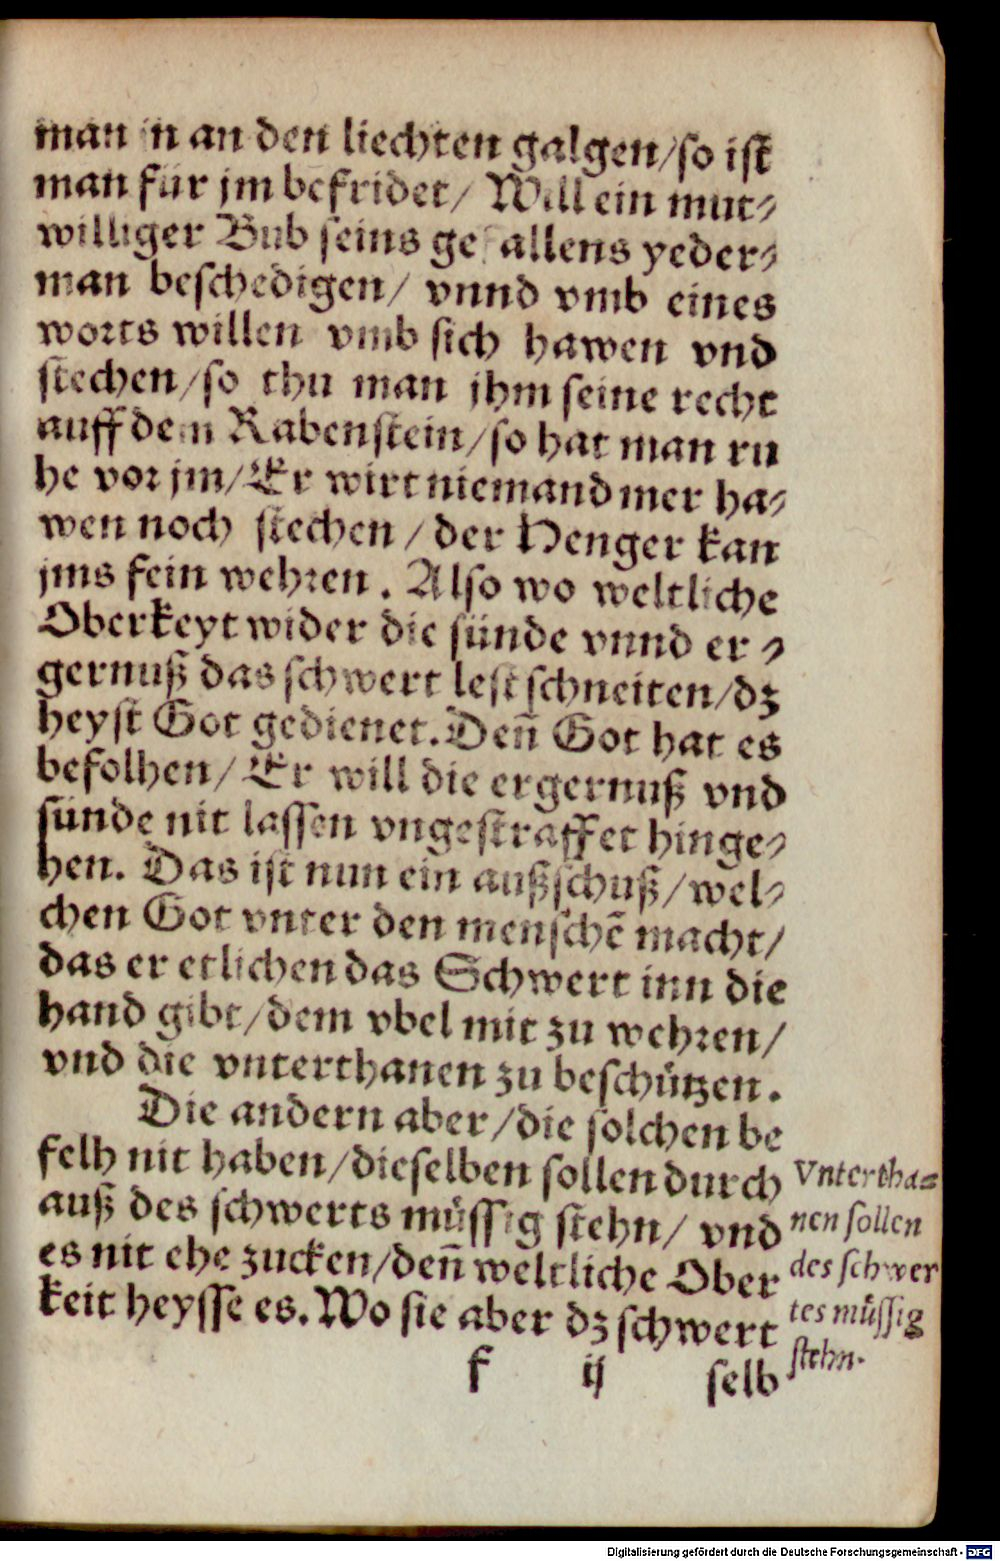 man in an den liechten galgen/so ist
man für jm befridet/ Will ein mut-
williger Bub seins gefallens yeder-
man beschedigen/ vnnd vmb eines
worts willen vmb sich hawen vnd
stechen/so thu man jhm seine recht
auff dem Rabenstein/so hat man ru
he vor jm/Er wirt niemand mer ha-
wen noch stechen/der Henger kan
jms fein wehren. Also wo weltliche
Oberkeyt wider die sünde vnnd er-
gernuß das schwert lest schneiten/dz
heyst Got gedienet. Deñ Got hat es
befolhen/ Er will die ergernuß vnd
sünde nit lassen vngestraffet hinge-
hen. Das ist nun ein außschuß/wel-
chen Got vnter den menschē macht/
das er etlichen das Schwert inn die
hand gibt/dem vbel mit zu wehren/
vnd die vnterthanen zu beschützen.
Die andern aber/die solchen be
felh nit haben/dieselben sollen durch
auß des schwerts müssig stehn/ vnd
es nit ehe zucken/deñ weltliche Ober
keit heysse es. Wo sie aber dz schwert
f ij selb
Vntertha-
nen sollen
des schwer
tes müssig
stehn.
Digitalisierung gefördert durch die Deutsche Forschungsgemeinschaft - DFG